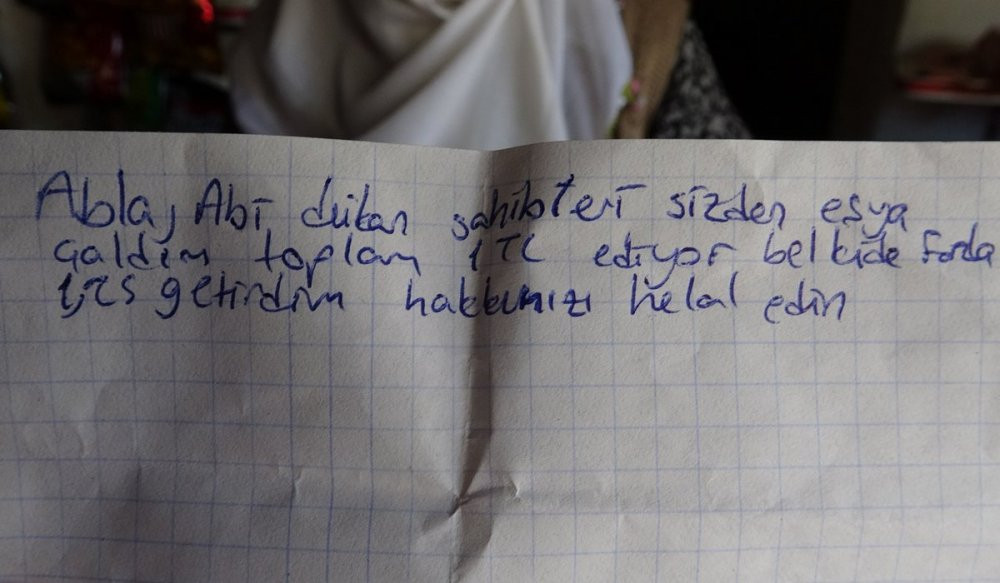 Abla, Abi dükan sahibleri sizden eşya
çaldım toplam 1 TL ediyor belkide fazla
1,25 getirdim hakkınızı helal edin